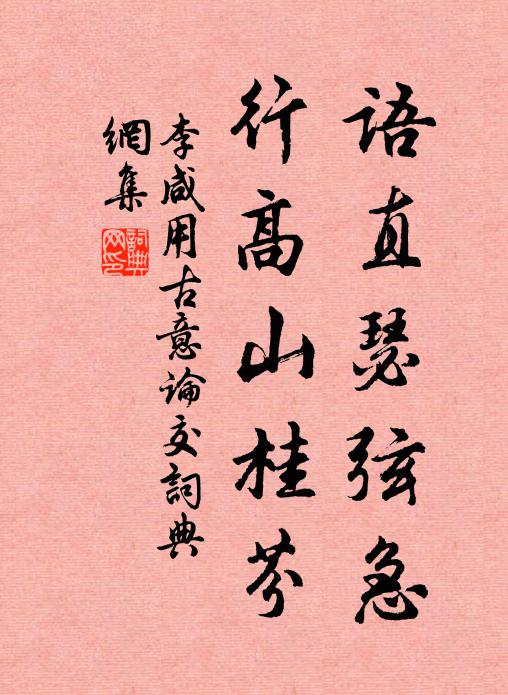 語直瑟弦急
行高山桂芬
李咸用古意論交詞典
網集
詞典網印